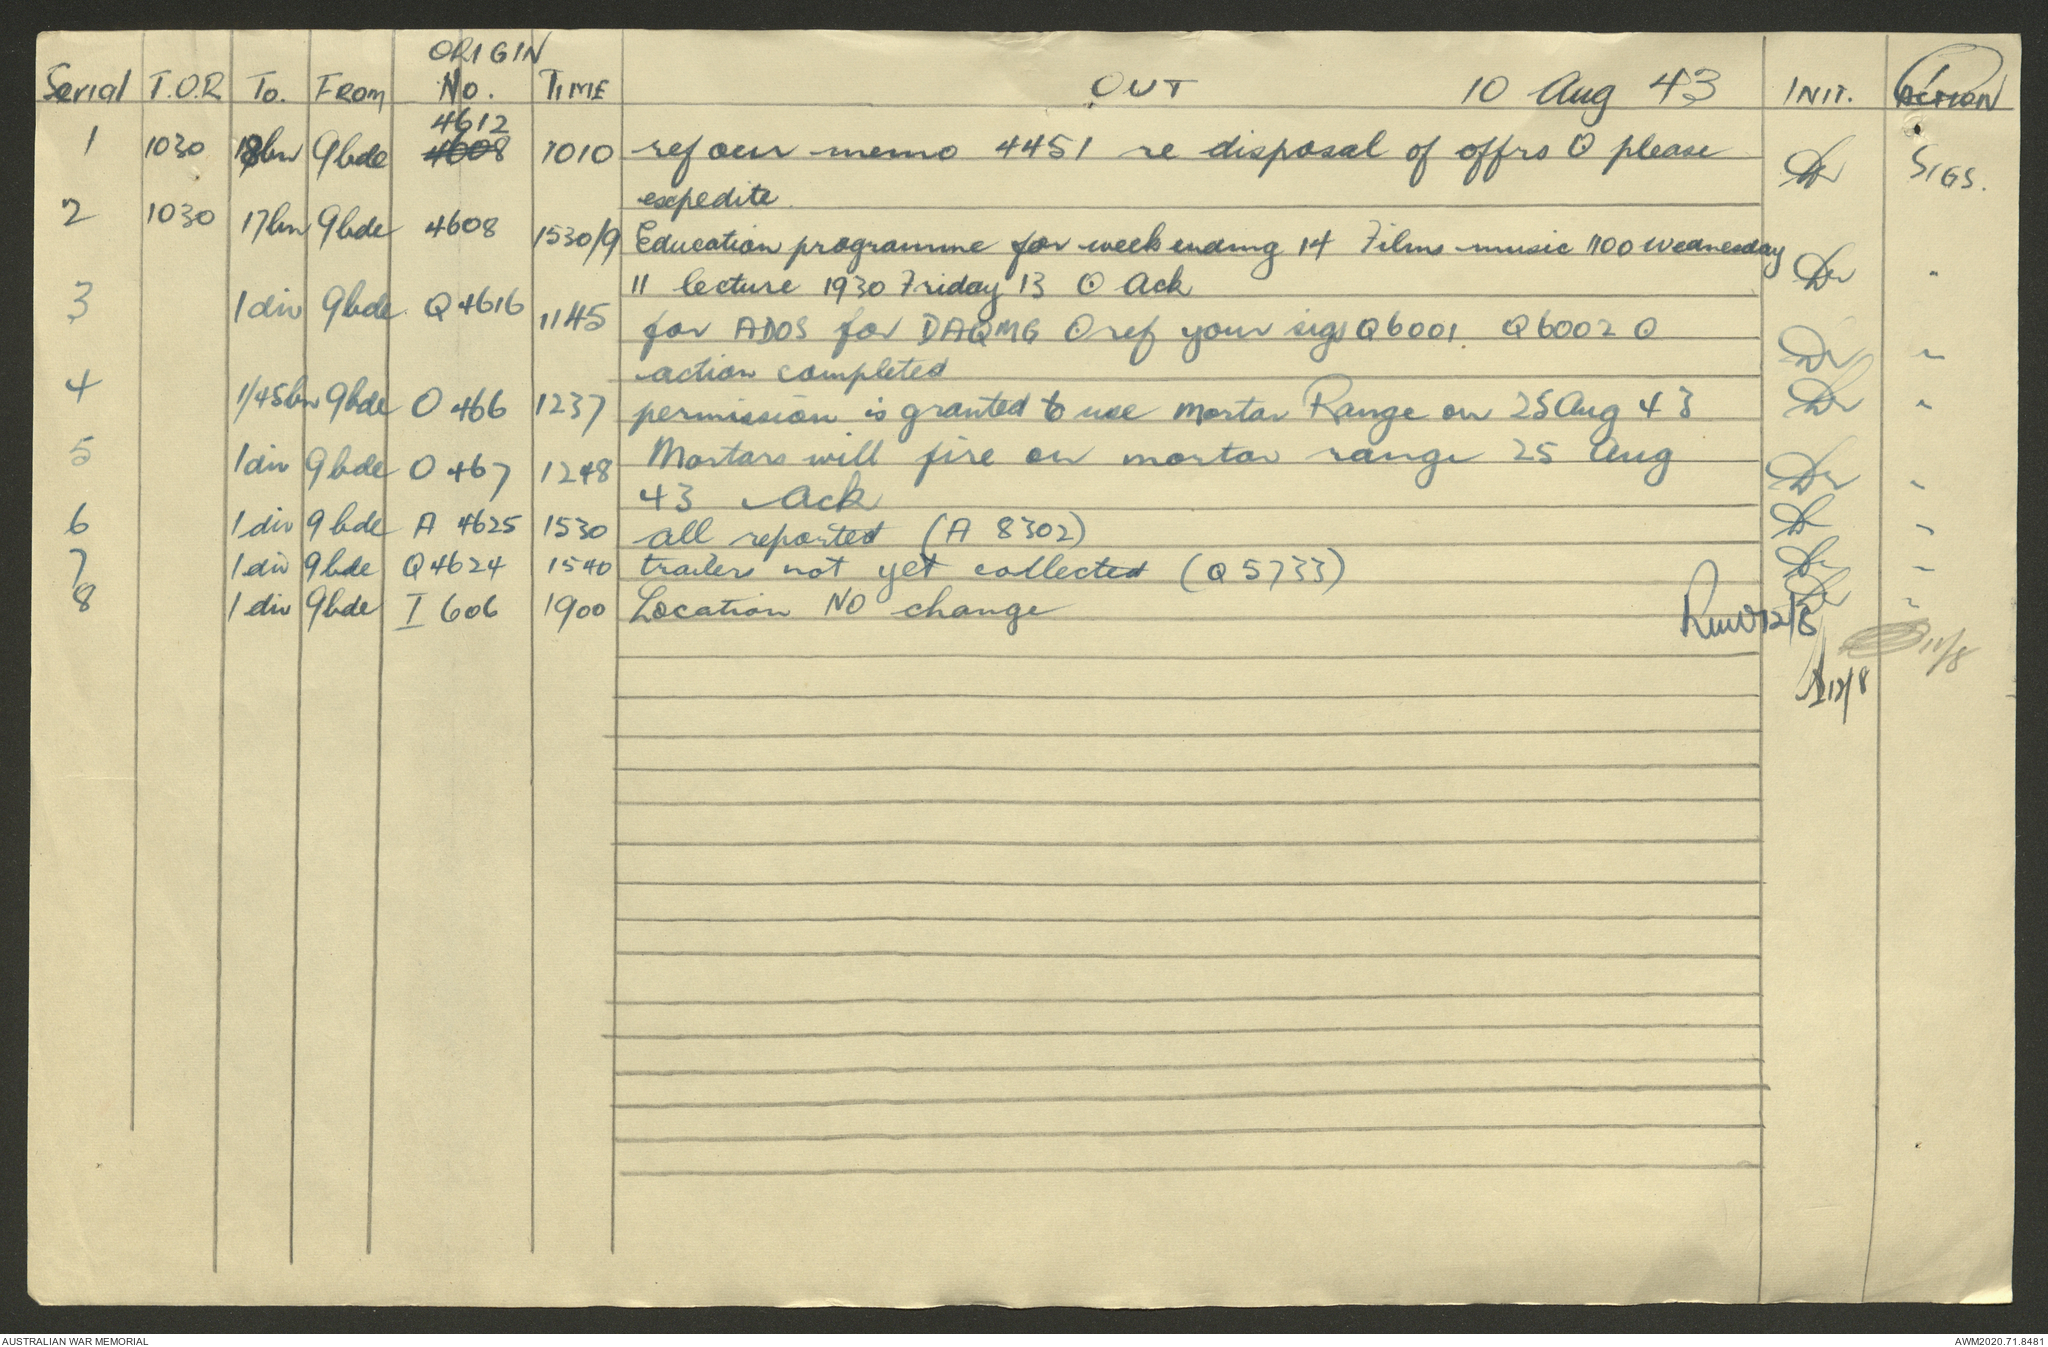 ORIGIN
Serial T.O.R To. From No. TIME OUT 10 Aug 43 INIT. ACTION
4612
1 1030 9bde 4608 1010 ref our memo 4451 re disposal of offrs O please SIGS.
expedite.
2 1030 17bn 9bde 4608 1530/9 Education programme for week ending 14 Films music 1100 Wednesday "
11 lecture 1930 Friday 13 O Ack
3 1 div 9bde. Q 4616 1145 for ADOS for DAQMG O ref your sigs Q6001. Q6002 O "
action completed
4 1/45bn 9bde O 466 1237 permission is granted to use mortar Range on 25 Aug 43 "
5 1 div 9bde O 467 1248 Mortars will fire on mortar range 25 Aug "
43 Ack
6 1 div 9 bde A 4625 1530 all reported (A 8302) "
7 1 div 9bde Q 4624 1540 trailers not yet collected (Q 5733) "
8 1 div 9bde I 606 1900 Location NO change "
12/8
11/8
12/8
AUSTRALIAN WAR MEMORIAL AWM2020.71.8481